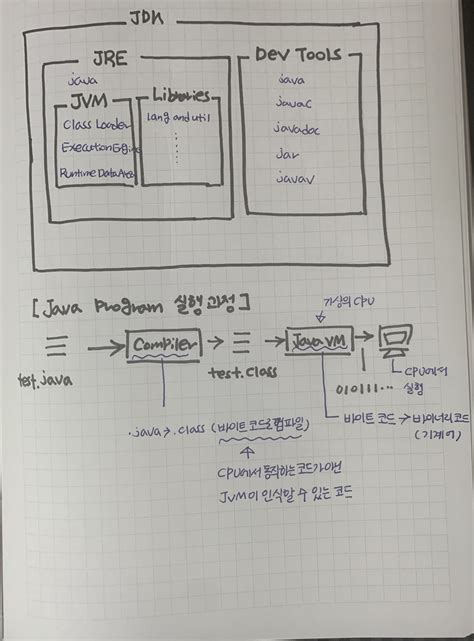 JDK
JRE
java
JVM
Class Loader
Execution Engine
Runtime Data Area
Libraries
lang and util
Dev Tools
java
javac
javadoc
jar
javav
[Java Program 실행과정]
test.java
Compiler
test.class
가상의 CPU
Java VM
010111...
CPU에서
실행
.java→.class (바이트코드로 컴파일)
바이트 코드 → 바이너리 코드
(기계어)
CPU에서 동작하는 코드가 아닌
JVM이 인식할 수 있는 코드